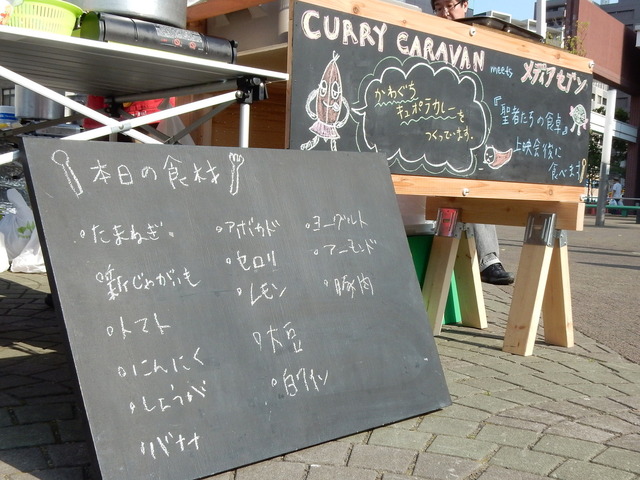 CURRY CARAVAN meets メディアセブン
かわぐち
キュポテカレーを
つくっています。
『聖者たちの食卓』
上映会後に
食べます
本日の食材
たまねぎ
新じゃがいも
トマト
にんにく
しょうが
バナナ
アボカド
セロリ
レモン
大豆
白ワイン
ヨーグルト
アーモンド
豚肉